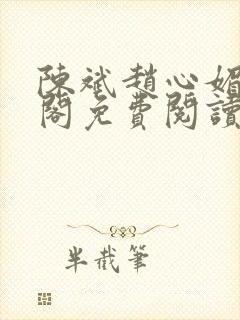 陳斌趙心媚
閣免費閱讀
半截筆